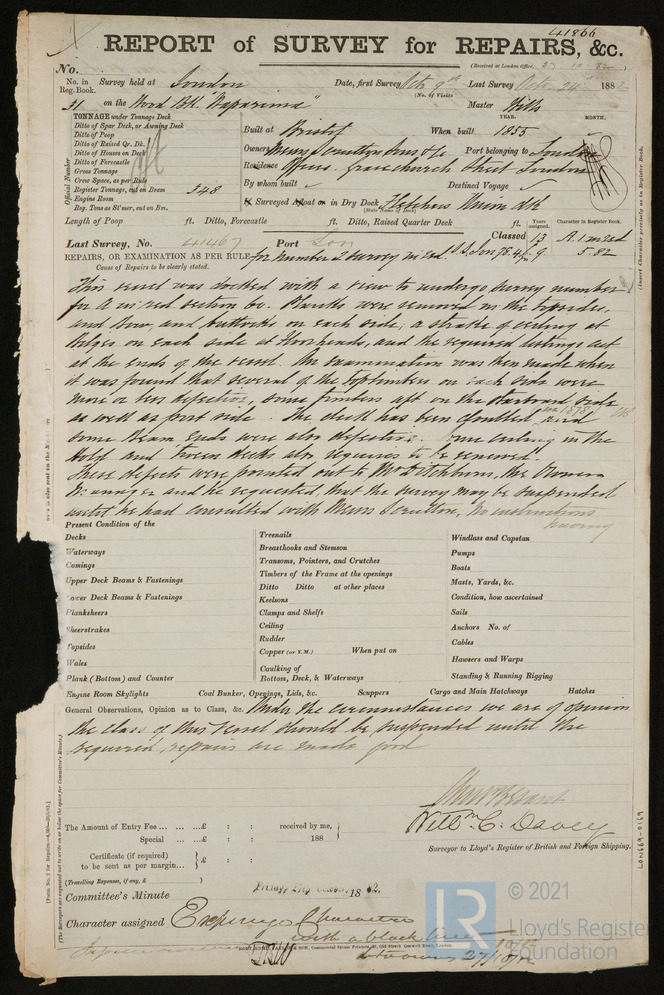 41866
REPORT of SURVEY for REPAIRS, &c.
(Received at London Office,
No.
No. in Reg. Book. Survey held at London Date, first Survey Octr 9th Last Survey Octr 24th 1882
(No. of Visits)
on the Wood Bk "Naparima" Master
TONNAGE under Tonnage Deck
Ditto of Spar Deck, or Awning Deck
Ditto of Poop
Ditto of Raised Qr. Dk.
Ditto of Houses on Deck
Ditto of Forecastle
Gross Tonnage
Crew Space, as per Rule
Register Tonnage, cut on Beam 348
Engine Room
Reg. Tons as St'mer, cut on Bm.
Official Number
YEAR. MONTH.
Built at Bristol When built 1855
Owners Messrs Scrutton Sons & Co Port belonging to London
Residence Offices. Gracechurch Street London
By whom built Destined Voyage
If Surveyed Afloat or in Dry Dock Fletchers Union Dk
(State Name of Dock)
Length of Poop ft. Ditto, Forecastle ft. Ditto, Raised Quarter Deck ft.
Years assigned. Character in Register Book.
Classed 13 A.1 in red
5.82
(Insert Character precisely as in Register Book.
Last Survey, No. 41467 Port Lon
REPAIRS, OR EXAMINATION AS PER RULE for number 2 survey in red.
Cause of Repairs to be clearly stated.
This vessel was docked with a view to undergo survey number 2
for A in red section 60. Planks were removed in the topsides,
and bow, and buttocks on each side, a strake of ceiling at
bilges on each side at floorheads, and the required listings cut
at the ends of the vessel. An examination was then made when
it was found that several of the toptimbers on each side were
more or less defective, some timbers aft on the starboard side
as well as port side. The deck has been doubled and
some beam ends were also defective. Some ceiling in the
hold and tween decks also requires to be renewed.
These defects were pointed out to Mr the Owners
Manager and he requested, that the survey may be suspended
until he had consulted with Messrs Scrutton, no instructions
having
Present Condition of the
Decks
Waterways
Comings
Upper Deck Beams & Fastenings
Lower Deck Beams & Fastenings
Planksheers
Sheerstrakes
Topsides
Wales
Plank (Bottom) and Counter
Treenails
Breasthooks and Stemson
Transoms, Pointers, and Crutches
Timbers of the Frame at the openings
Ditto Ditto at other places
Keelsons
Clamps and Shelfs
Ceiling
Rudder
Copper (or Y.M.) When put on
Caulking of
Bottom, Deck, & Waterways
Windlass and Capstan
Pumps
Boats
Masts, Yards, &c.
Condition, how ascertained
Sails
Anchors No. of
Cables
Hawsers and Warps
Standing & Running Rigging
Engine Room Skylights Coal Bunker, Openings, Lids, &c. Scuppers Cargo and Main Hatchways Hatches
General Observations, Opinion as to Class, &c. Under the circumstances we are of opinion
the class of this vessel should be suspended until the
required repairs are made good
Willm. C. Davey
Surveyor to Lloyd's Register of British and Foreign Shipping.
The Amount of Entry Fee ... ... ...£ : : received by me,
Special ... ...£ : : 188
Certificate (if required)
to be sent as per margin... £ : :
(Travelling Expenses, if any, £
Committee's Minute 1882.
Character assigned Expunge Character
with a black line
LON669-0169
LR
© 2021
Lloyd's Register
Foundation